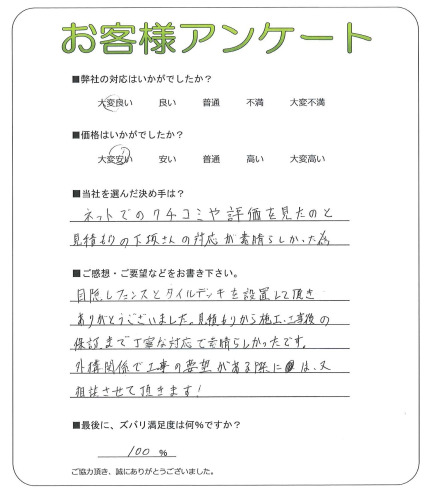 お客様アンケート
■弊社の対応はいかがでしたか？
大変良い 良い 普通 不満 大変不満
■価格はいかがでしたか？
大変安い 安い 普通 高い 大変高い
■当社を選んだ決め手は？
ネットでのクチコミや評価を見たのと
見積もりの下坂さんの対応が素晴らしかった為
■ご感想・ご要望などをお書き下さい。
目隠しフェンスとタイルデッキを設置して頂き
ありがとうございました。見積もりから施工、工事後の
保証まで丁寧な対応で素晴らしかったです。
外構関係で工事の要望がある際には、又
相談させて頂きます！
■最後に、ズバリ満足度は何％ですか？
100 ％
ご協力頂き、誠にありがとうございました。